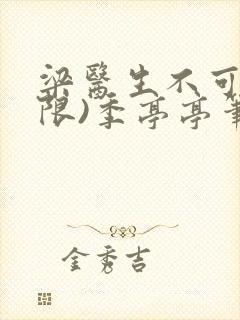 梁醫生不可
限)季亭亭筆
金秀吉